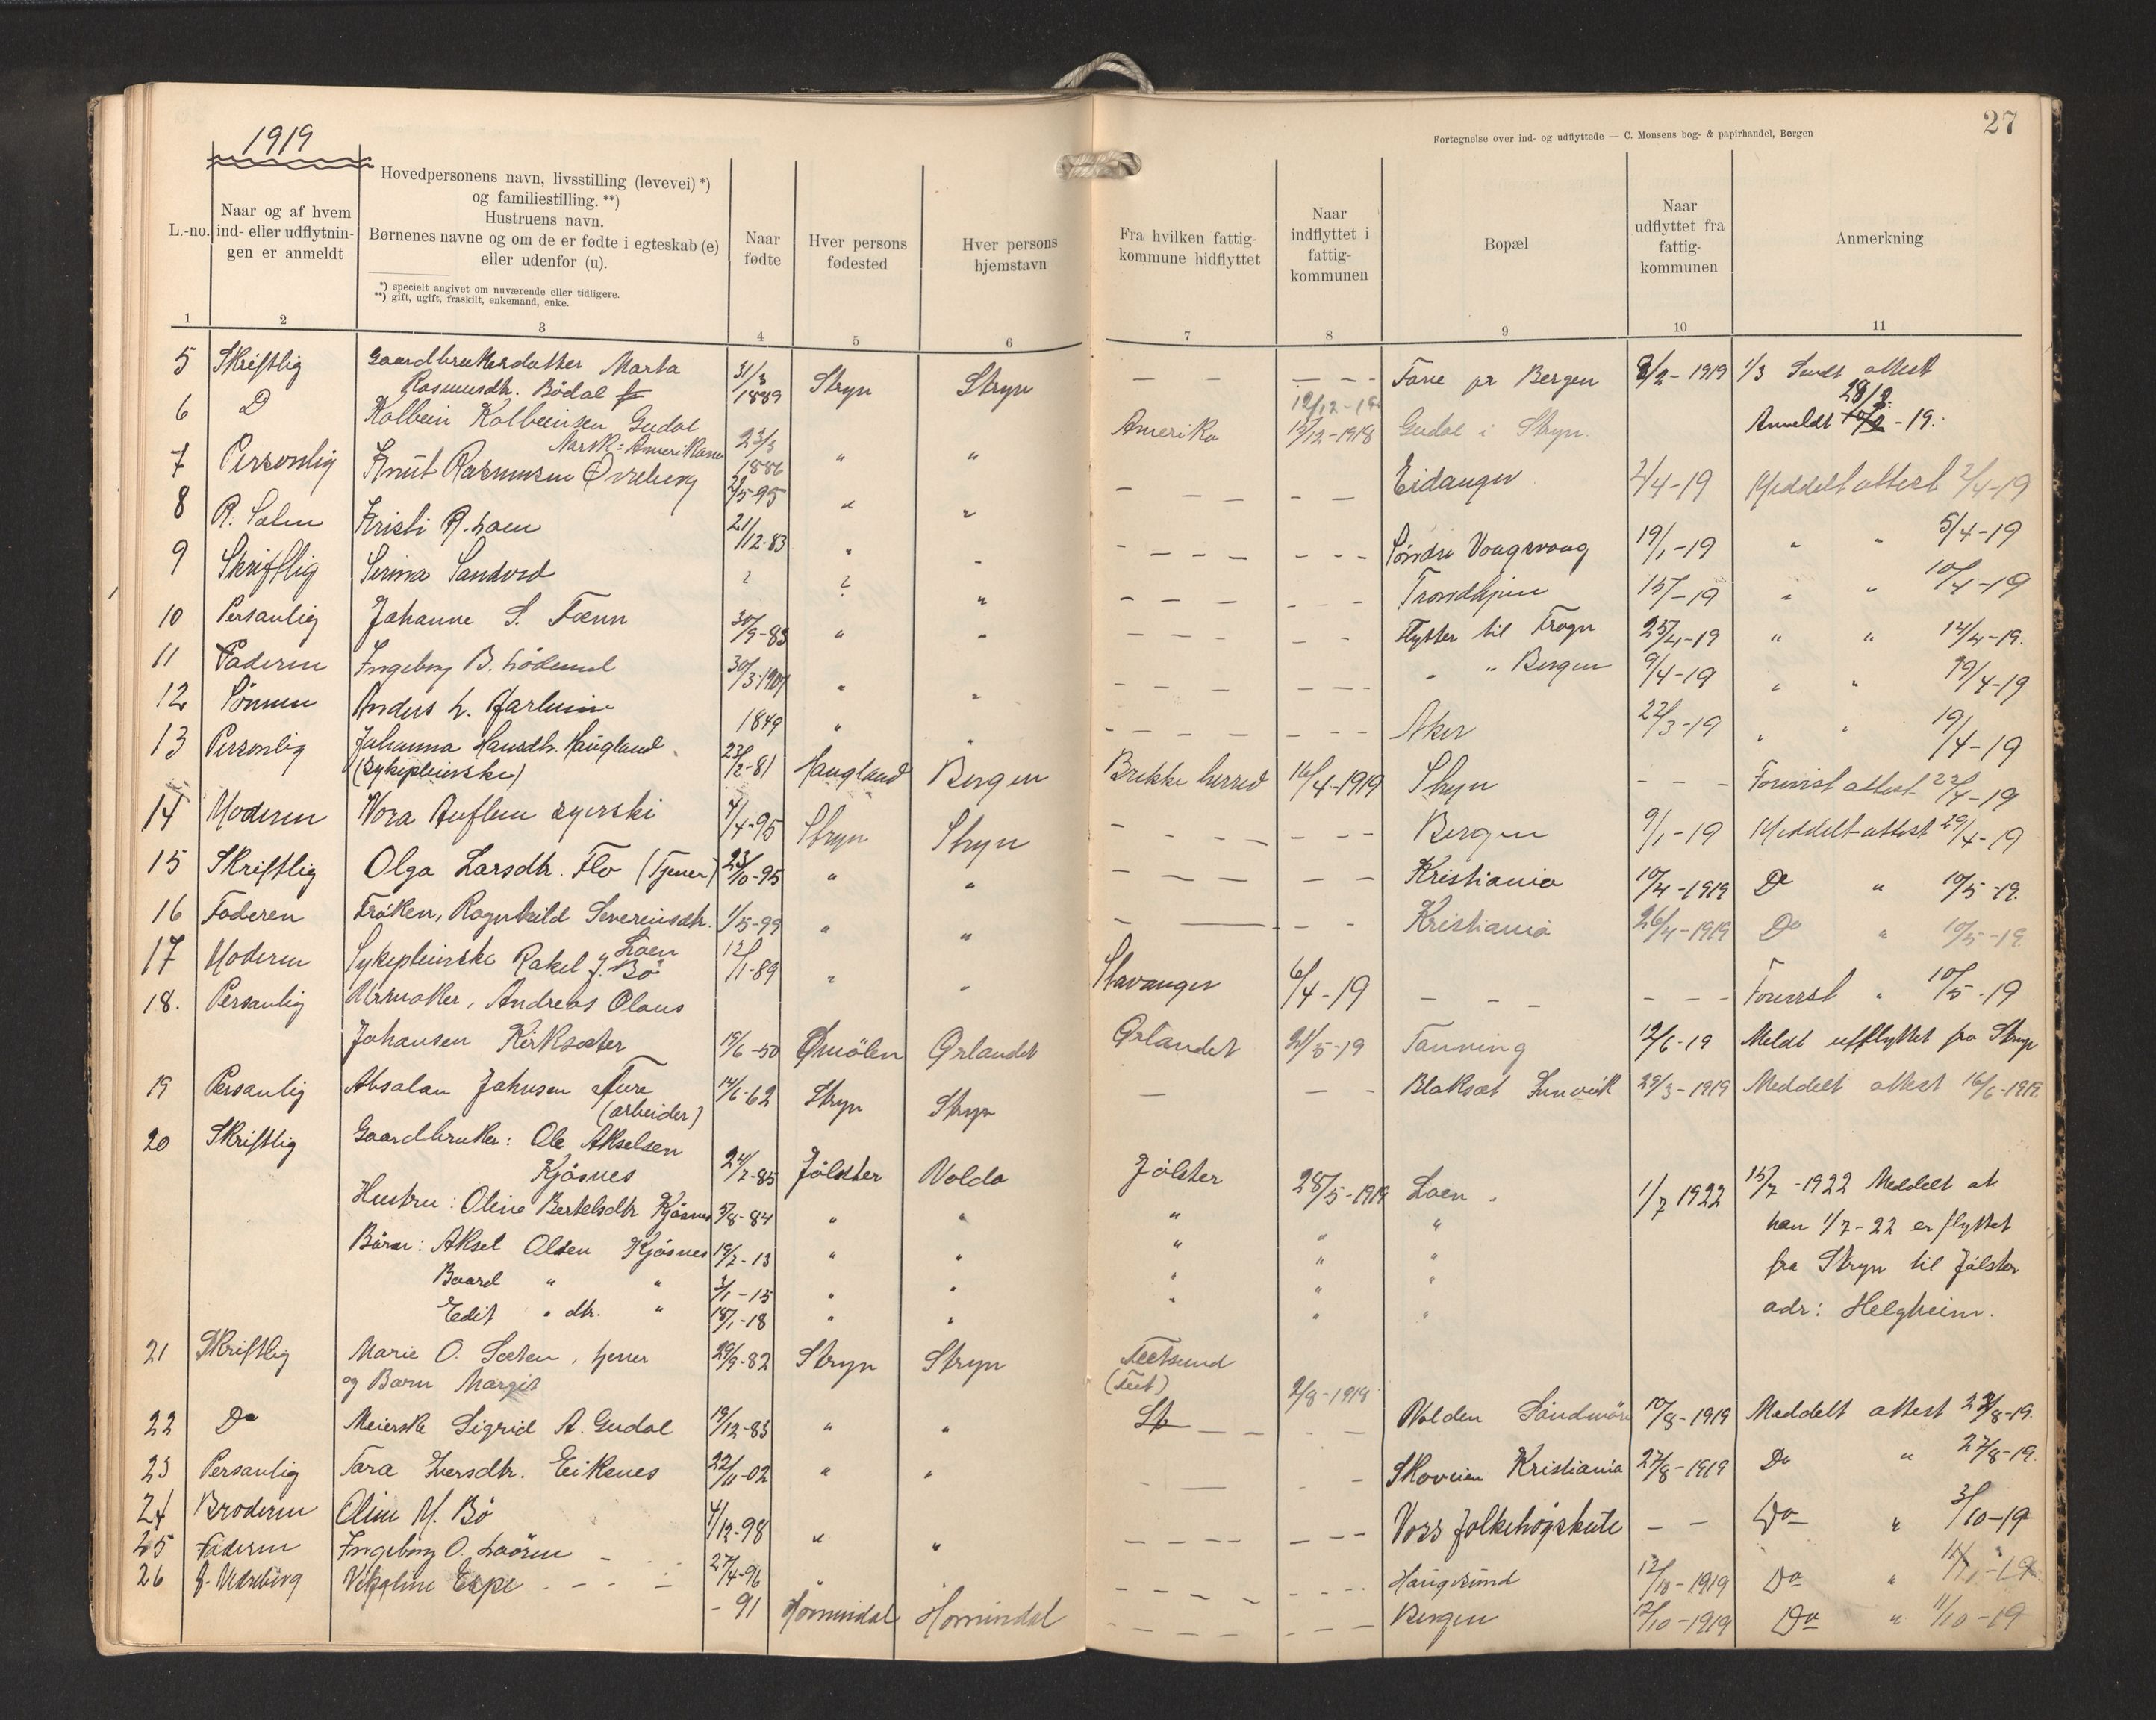 1919
27
Fortegnelse over ind- og udflyttede — C. Monsens bog- & papirhandel, Bergen
L.-no.
Naar og af hvem
ind- eller udflytnin-
gen er anmeldt
Hovedpersonens navn, livsstilling (levevei) *)
og familiestilling. **)
Hustruens navn.
Børnenes navne og om de er fødte i egteskab (e)
eller udenfor (u).
*) specielt angivet om nuværende eller tidligere.
**) gift, ugift, fraskilt, enkemand, enke.
Naar
fødte
Hver persons
fødested
Hver persons
hjemstavn
Fra hvilken fattig-
kommune hidflyttet
Naar
indflyttet i
fattig-
kommunen
Bopæl
Naar
udflyttet fra
fattig-
kommunen
Anmerkning
1 2 3 4 5 6 7 8 9 10 11
5 Skriftlig Gaardbrukerdatter Marta 31/3 Stryn Stryn — - — - - Fane pr Bergen 8/2-1919 1/3 Sendt attest
Rasmusdtr. Bödal 1889
12/12-18 28/2
6 D Kolbein Kolbeinsen Gudal 23/3 " " Amerika 12/12-1918 Gudal i Stryn. Anmeldt -19.
Norsk-Amerikaner 1886
7 Personlig Knut Rasmussen Övreberg 2/5-95 " " Eidanger 2/4-19 Meddelt attest 2/4-19
8 R. Kristi R. Loen 21/12-83 " " Söndre 19/1-19 " " 5/4-19
9 Skriftlig Serina Sandvid ? ? " Trondhjem 15/-19 " " 10/4-19
10 Personlig Johanne S. Tænn 30/9-83 " " Flytter til Frogn 25/4-19 " " 14/4-19.
11 Faderen Ingeborg B. Lödemel 30/3-1901 " " " Bergen 9/4-19 " " 19/4-19
12 Sönnen Anders L. 1849 " " Aker 22/3-19 " " 19/4-19
13 Personlig Johanna Hansdtr. Haugland 23/2-81 Haugland Bergen Brekke herred 16/4-1919 Stryn - - - Forevist attest 22/4-19
(Sykepleierske)
14 Moderen Nora Auflem syerske 4/4-95 Stryn Stryn Bergen 9/1-19 Meddelt attest 29/4-19
15 Skriftlig Olga Larsdtr. Flo (Tjener) 23/10-95 " " Kristiania 10/4-1919 Do " 10/5-19.
16 Faderen Fröken, Ragnhild Severinsdtr. 1/5-99 " " Kristiania 26/4-1919 Do " 10/5-19.
Loen
17 Moderen Sykepleierske Rakel J. Bö 12/1-89 " " Stavanger 6/4-19 - - - - - - Forevist " 10/5-19
18. Personlig Urmaker, Andreas Olaus
Johansen Kirksæter 15/6-50 Örlandet Örlandet 21/5-19 12/6-19 Meldt utflyttet fra Stryn
19 Personlig Absalon Johnsen Ture 14/6-62 Stryn Stryn — - - Blaksæt Innvik 29/3-1919 Meddelt attest 16/6-1919.
(arbeider)
20 Skriftlig Gaardbruker: Ole Akselsen
Kjösnes 24/7-85 Jölster Volda Jölster 28/5-1919 Loen. 1/7 1922 15/7-1922 Meddelt at
Hustru: Oline Bertelsdtr Kjösnes 5/8-84 " " " " " han 1/7-22 er flyttet
Börn: Aksel Olsen Kjösnes 19/7-13 " " " " " fra Stryn til Jölster
Baard " " 3/1-15 " " " " " adr: Helgheim.
Edit " dtr. " 18/1-18 " " " " "
21 Skriftlig Marie O. Sæten, tjener 29/9-82 Stryn Stryn Fetsund
og Barn Margit (Fet) 2/8-1918
22 Do Meierske Sigrid A. Gudal 19/12-83 " " Volden Söndmöre 10/8-1919 Meddelt attest 23/8-19.
23 Personlig Tora Iversdtr. Eikenes 22/11-02 " " Skoveien Kristiania 27/8-1919 Do " 27/8-19.
24 Broderen Oline M. Bö 4/12-98 " " Voss folkehögskule - - Do " 3/10-19
25 Faderen Ingeborg O. 27/4-96 Haugesund 12/10-1919 Do "
26 Espe - 91 Hornindal Hornindal Bergen 12/10-1919 Do " 11/10-19